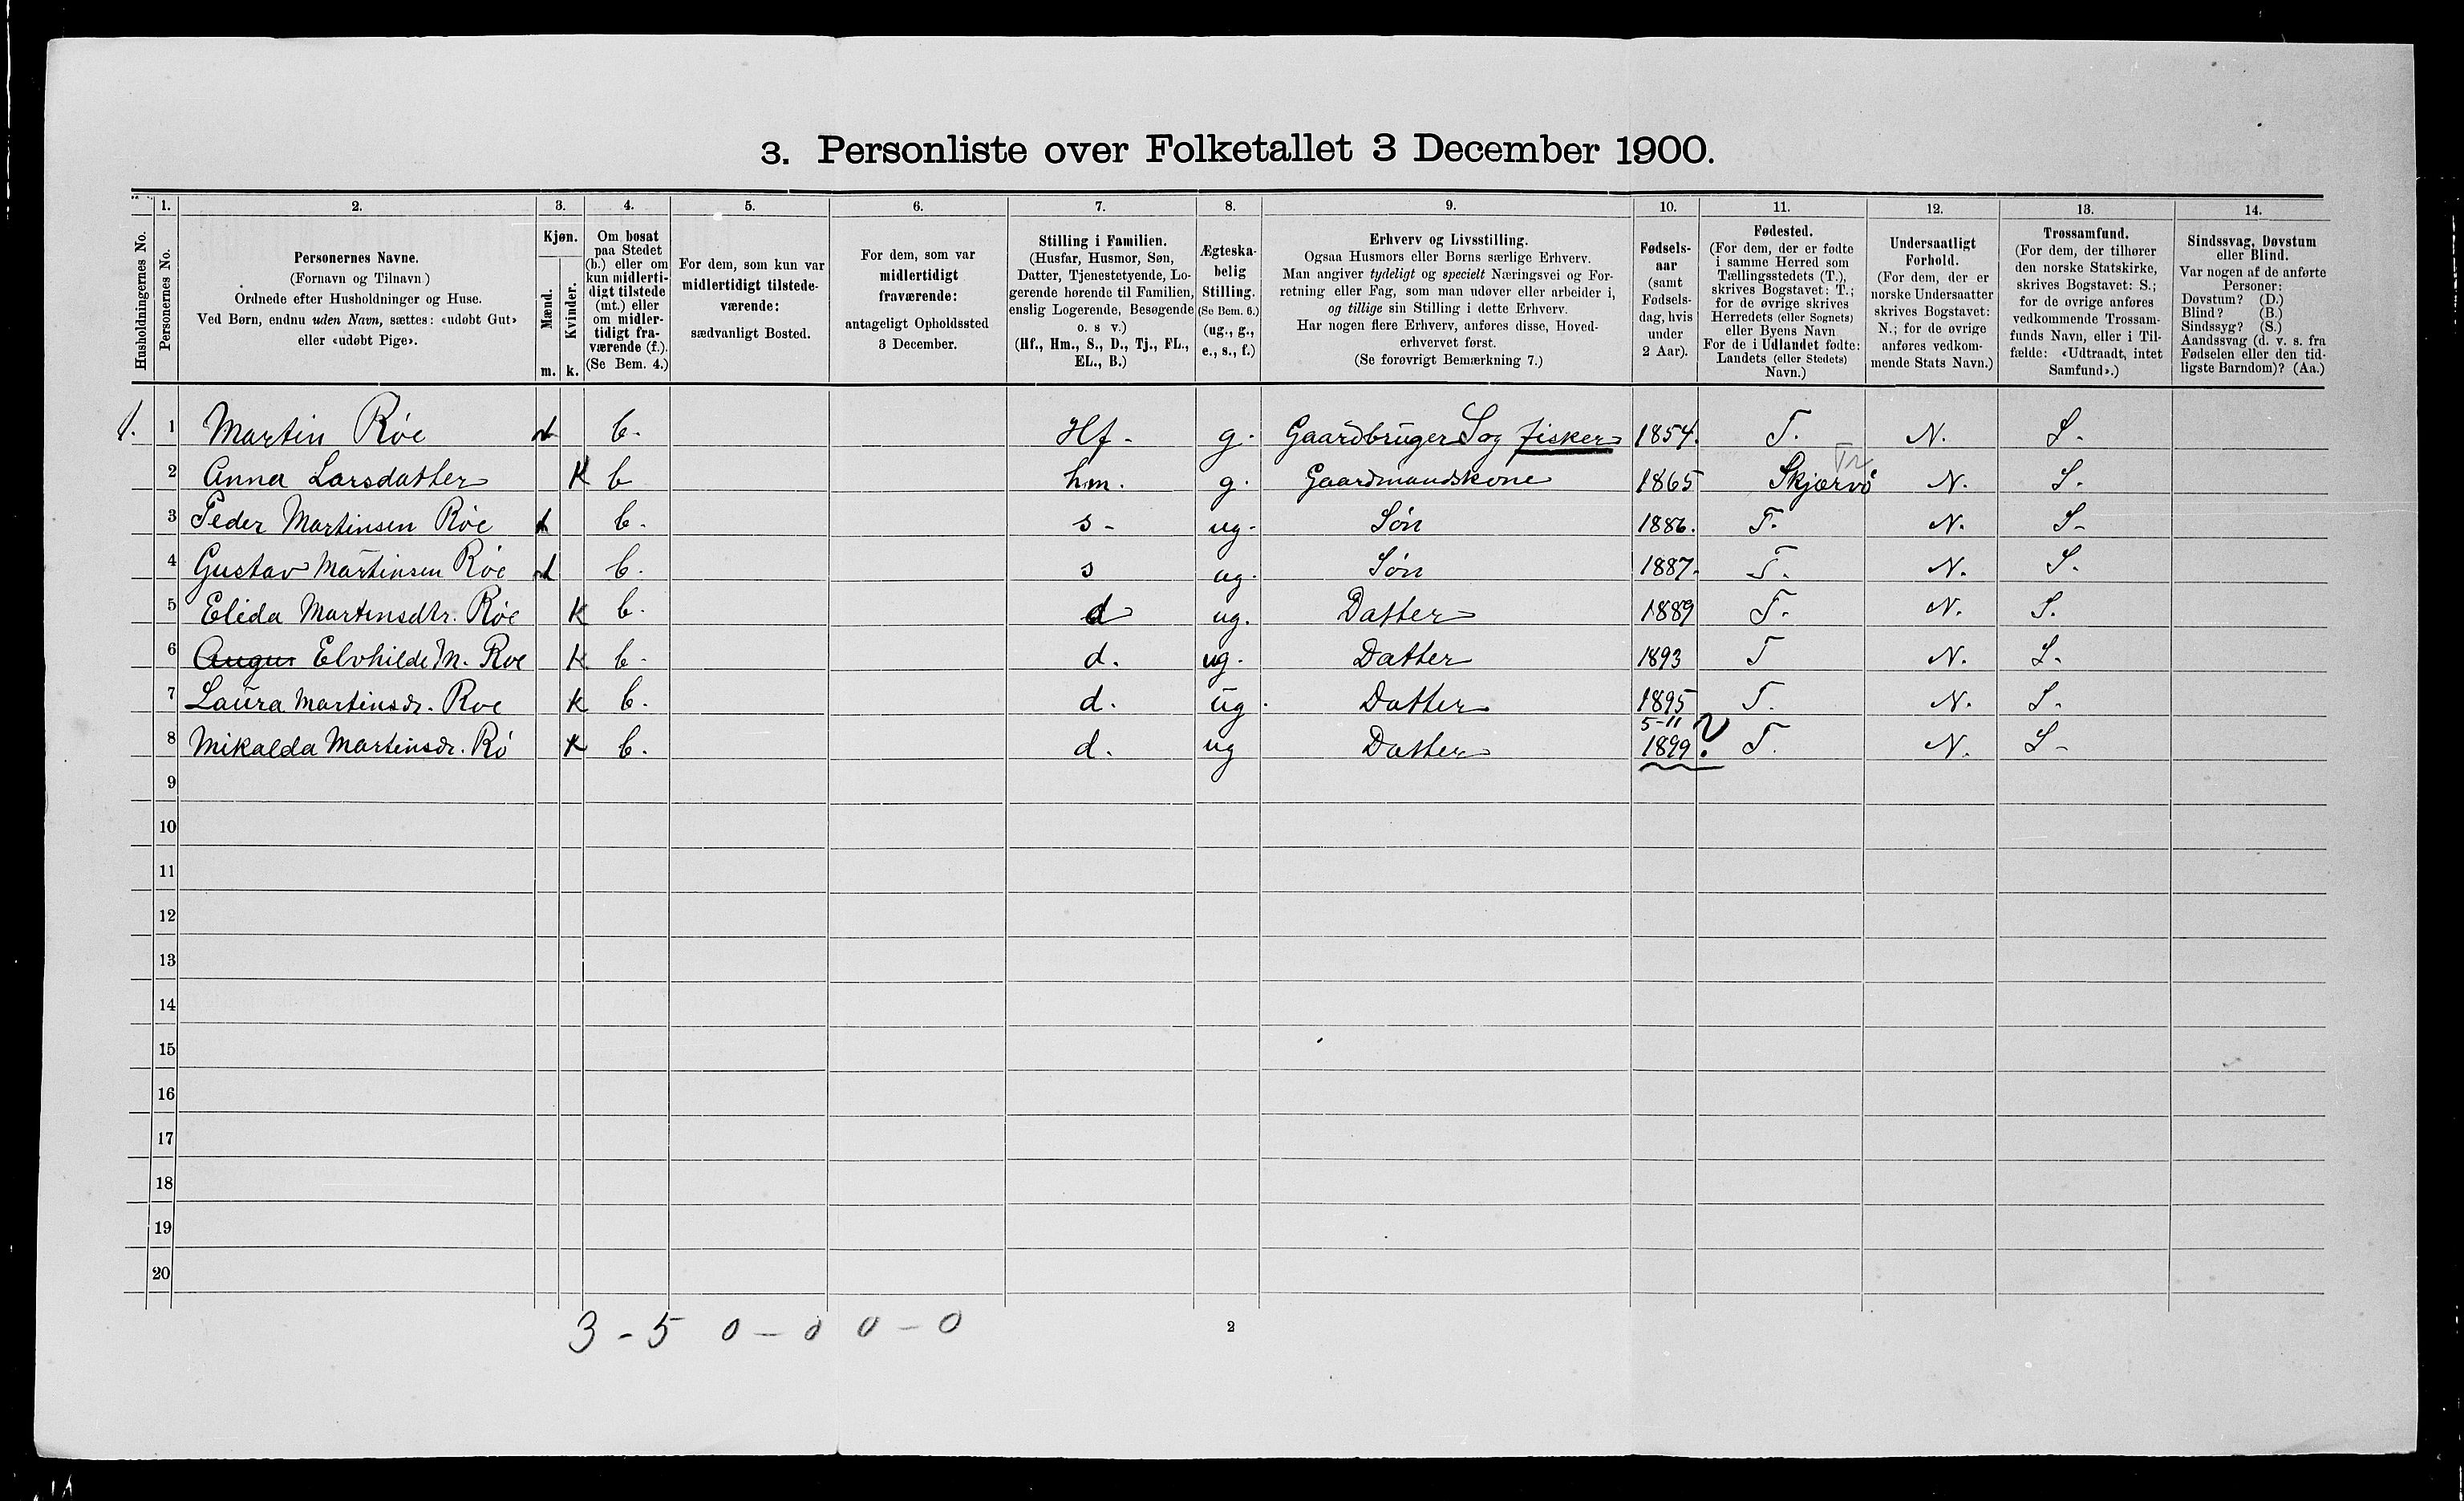 3. Personliste over Folketallet 3 December 1900.
1. 2. 3. 4. 5. 6. 7. 8. 9. 10. 11. 12. 13. 14.
Husholdningernes No.
Personernes No.
Personernes Navne.
(Fornavn og Tilnavn)
Ordnede efter Husholdninger og Huse.
Ved Børn, endnu uden Navn, sættes: «udøbt Gut»
eller «udøbt Pige».
Kjøn.
Mænd.
Kvinder.
m. k.
Om bosat
paa Stedet
(b.) eller om
kun midlerti-
digt tilstede
(mt.) eller
om midler-
tidigt fra-
værende (f.).
(Se Bem. 4.)
For dem, som kun var
midlertidigt tilstede-
værende:
sædvanligt Bosted.
For dem, som var
midlertidigt
fraværende:
antageligt Opholdssted
3 December.
Stilling i Familien.
(Husfar, Husmor, Søn,
Datter, Tjenestetyende, Lo-
gerende hørende til Familien,
enslig Logerende, Besøgende
o. s v.)
(Hf., Hm., S., D., Tj., FL.,
EL., B.)
Ægteska-
belig
Stilling.
(Se Bem. 6.)
(ug., g.,
e., s., f.)
Erhverv og Livsstilling.
Ogsaa Husmors eller Børns særlige Erhverv.
Man angiver tydeligt og specielt Næringsvei og For-
retning eller Fag, som man udøver eller arbeider i,
og tillige sin Stilling i dette Erhverv.
Har nogen flere Erhverv, anføres disse, Hoved-
erhvervet først.
(Se forøvrigt Bemærkning 7.)
Fødsels-
aar
(samt
Fødsels-
dag, hvis
under
2 Aar).
Fødested.
(For dem, der er fødte
i samme Herred som
Tællingsstedets (T.),
skrives Bogstavet: T.;
for de øvrige skrives
Herredets (eller Sognets)
eller Byens Navn
For de i Udlandet fødte:
Landets (eller Stedets)
Navn.)
Undersaatligt
Forhold.
(For dem, der er
norske Undersaatter
skrives Bogstavet:
N.; for de øvrige
anføres vedkom-
mende Stats Navn.)
Trossamfund.
(For dem, der tilhører
den norske Statskirke,
skrives Bogstavet: S.;
for de øvrige anføres
vedkommende Trossam-
funds Navn, eller i Til-
fælde: «Udtraadt, intet
Samfund».)
Sindssvag, Døvstum
eller Blind.
Var nogen af de anførte
Personer:
Døvstum? (D.)
Blind? (B.)
Sindssyg? (S.)
Aandssvag (d. v. s. fra
Fødselen eller den tid-
ligste Barndom)? (Aa.)
1. 1 Martin Röe b. Hf. g. Gaardbruger S og fisker 1854. T. N. S.
Tr
2 Anna Larsdatter K b hm. g. Gaardmandskone 1865 Skjærvö N. S.
3 Peder Martinsen Röe b. s ug. Sön 1886. T. N. S.
4 Gustav Martinsen Röe b. s ug. Sön 1887. T. N. S.
5 Elida Martinsdtr. Röe K b. d ug. Datter 1889 T. N. S.
6 Augus Elvhilde M. Roe K b. d. ug. Datter 1893 T N. S.
7 Laura Martinsdr. Roe K b. d. ug. Datter 1895 T. N. S.
5-11
8 Mikalda Martinsdr. Rö K b. d. ug Datter 1899 ? T. N. S.
9
10
11
12
13
14
15
16
17
18
19
20
3 - 5 0 - 0 0 - 0
2